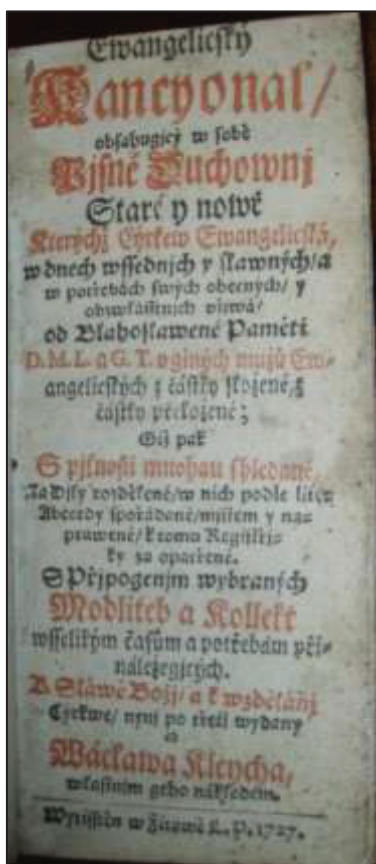 Ewangelicský
Kancyonal/
obsahugjcý w sobě
Pjsně Duchownj
Staré y nowé
Kterychž Cýrkew Ewangelicská,
w dnech wssednjch y slawných/a
w potřebách swých obecných/ y
obzwlásstnjch vžjwá/
od Blahoslawené Paměti
D. M. L. a G. T. y giných mužů Ew-
angelických z částky složené/ z
částky přeložené;
Giž pak
S pjlnostj mnohau shledané,
Na Djly rozdělené/w nich podle liter
Abecedy spořádané/mjstem y na-
prawené/ k tomu Registřj-
ky za opatřené.
S Připogenjm wybraných
Modliteb a Kollekt
wsselikým časům a potřebám při-
náležegjcých.
K Sláwě Božj/ a k wzdělánj
Cýrkwe/ nynj po třetj wydaný
od
Wácława Kleycha,
wlastnjm geho nákladem.
Wytisstěn w Žitawě L. P. 1727.